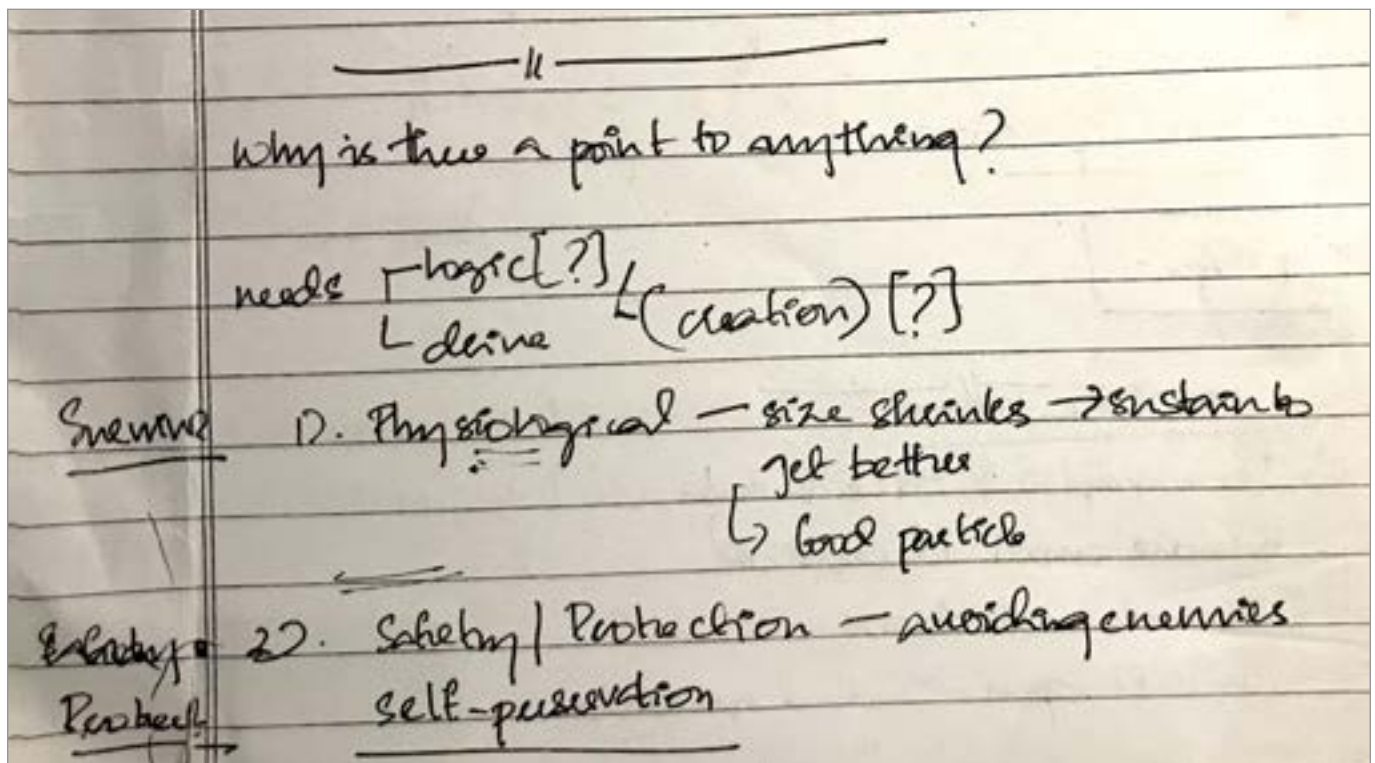 Why is there a point to anything?
needs logic [?]
desire (creation) [?]
Survive 1). Physiological — size shrinks → sustain to
get better
↳ Good particle
2). Safety / Protection — avoiding enemies
Protect self-preservation